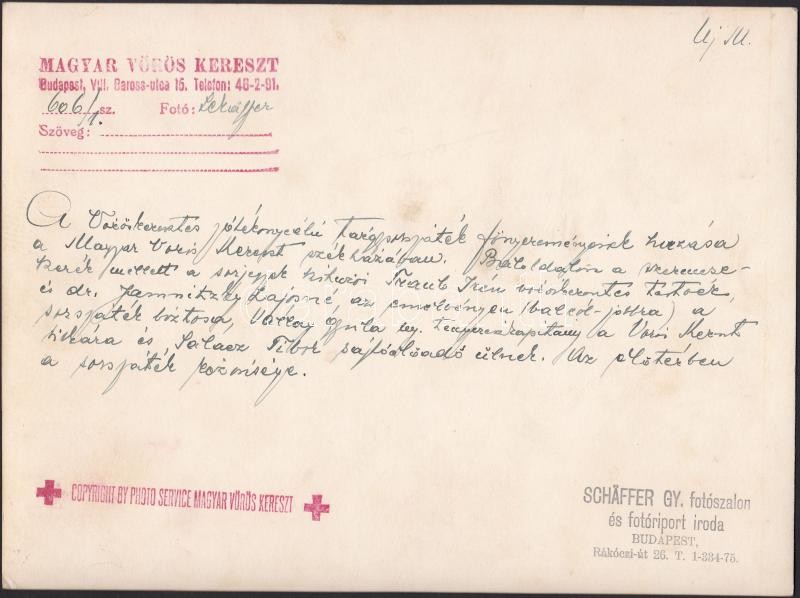 Uj M.
MAGYAR VÖRÖS KERESZT
Budapest, VIII. Baross-utca 15. Telefon: 46-2-91.
606/1. sz. Fotó: Schäffer
Szöveg:
A Vöröskeresztes jótékonycélú tárgysorsjáték főnyereményeinek húzása
a Magyar Vörös Kereszt székházában. Baloldalon a szerencse-
kerék mellett a sorsjegyek kihúzói Traub Irén vöröskeresztes testvér,
és dr. Jamnitzky Lajosné, az emelvényen (balról-jobbra) a
sorsjáték biztosa, Vállay Gyula ny. tengerészkapitány a Vörös Kereszt
titkára és Salacz Tibor sajtóelőadó ülnek. Az előtérben
a sorsjáték közönsége.
COPYRIGHT BY PHOTO SERVICE MAGYAR VÖRÖS KERESZT
SCHÄFFER GY. fotószalon
és fotóriport iroda
BUDAPEST,
Rákóczi-út 26. T. 1-334-75.